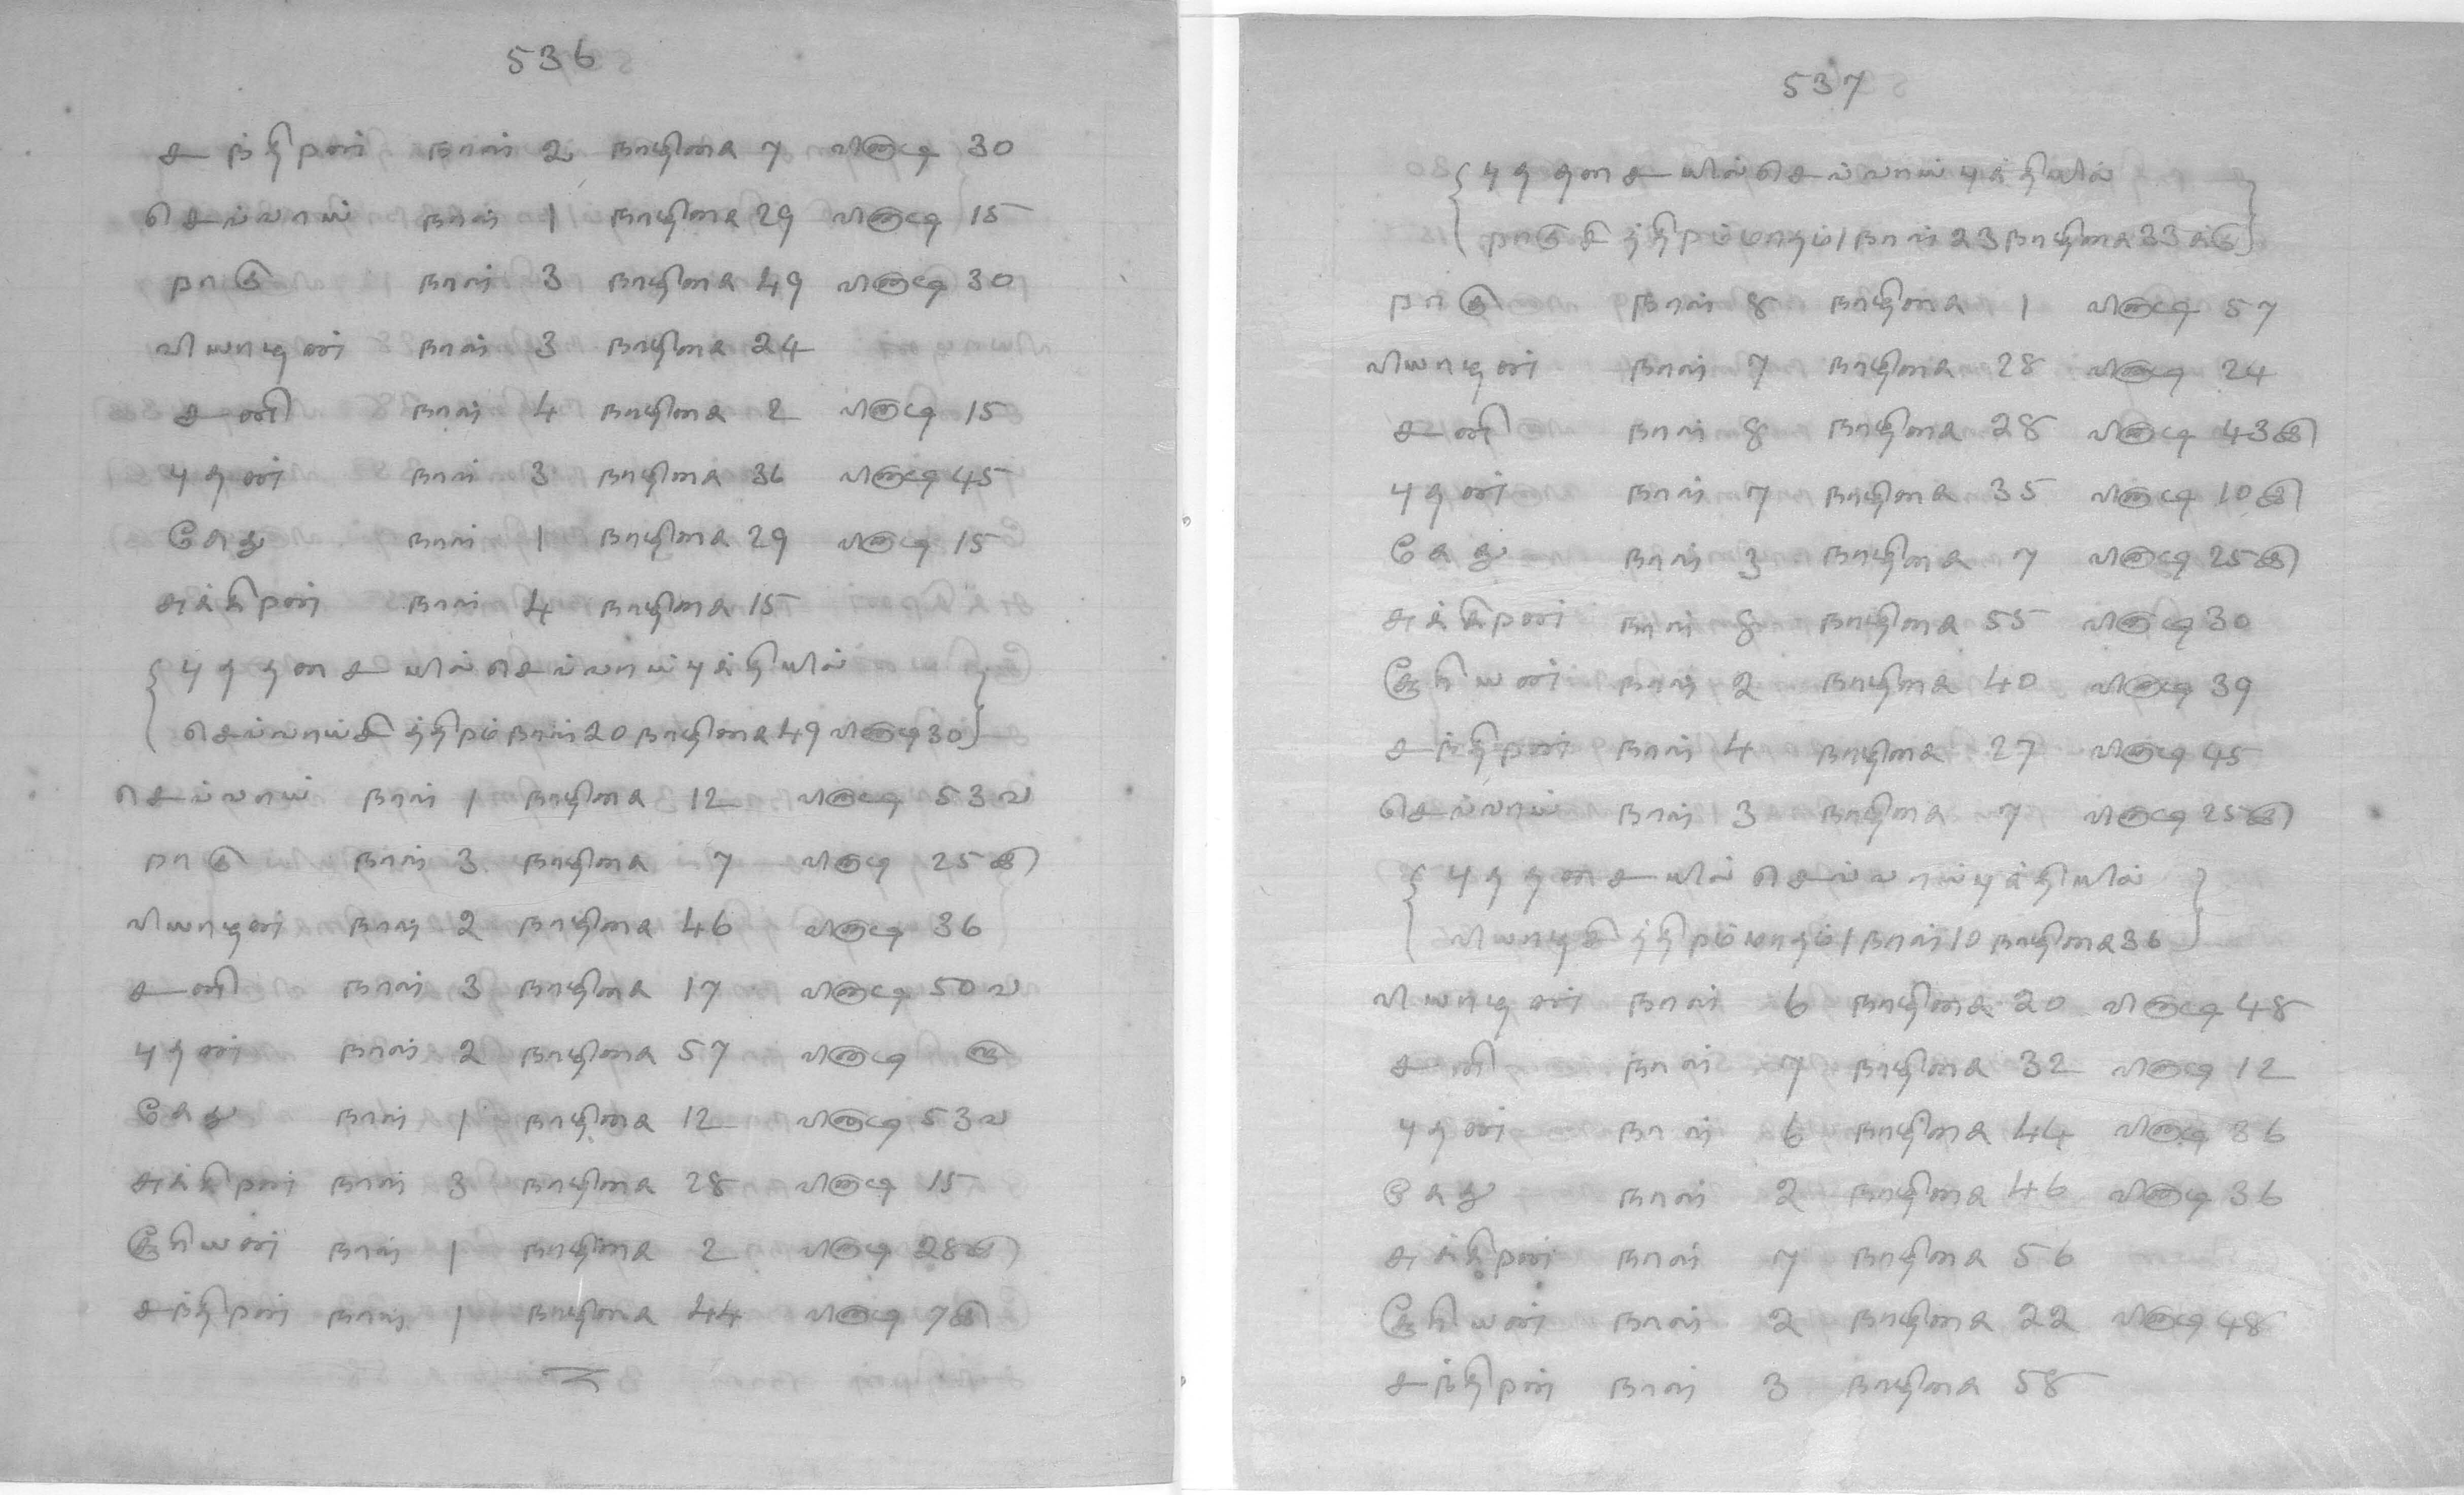 536
சந்திரன் நாள் 2 நாழிகை 7 விநாடி 30
செவ்வாய் நாள் 1 நாழிகை 29 விநாடி 15
ராகு நாள் 3 நாழிகை 49 விநாடி 30
வியாழன் நாள் 3 நாழிகை 24
சனி நாள் 4 நாழிகை 2 விநாடி 15
புதன் நாள் 3 நாழிகை 36 விநாடி 45
கேது நாள் 1 நாழிகை 29 விநாடி 15
சுக்கிரன் நாள் 4 நாழிகை 15
{புத தசையில் செவ்வாய் புக்தியில்
செவ்வாய் சித்திரம் நாள் 20 நாழிகை 49 விநாடி 30}
செவ்வாய் நாள் 1 நாழிகை 12 விநாடி 53வ
ராகு நாள் 3 நாழிகை 7 விநாடி 25௯
வியாழன் நாள் 2 நாழிகை 46 விநாடி 36
சனி நாள் 3 நாழிகை 17 விநாடி 50வ
புதன் நாள் 2 நாழிகை 57 விநாடி
கேது நாள் 1 நாழிகை 12 விநாடி 53வ
சுக்கிரன் நாள் 3 நாழிகை 28 விநாடி 15
சூரியன் நாள் 1 நாழிகை 2 விநாடி 28௯
சந்திரன் நாள் 1 நாழிகை 44 விநாடி 7௯
537
{புத தசையில் செவ்வாய் புக்தியில்
ராகு சித்திரம் மாதம் 1 நாள் 23 நாழிகை 33க்கு}
ராகு நாள் 8 நாழிகை 1 விநாடி 57
வியாழன் நாள் 7 நாழிகை 28 விநாடி 24
சனி நாள் 8 நாழிகை 28 விநாடி 43௯
புதன் நாள் 7 நாழிகை 35 விநாடி 10௯
கேது நாள் 3 நாழிகை 7 விநாடி 25௯
சுக்கிரன் நாள் 8 நாழிகை 55 விநாடி 30
சூரியன் நாள் 2 நாழிகை 40 விநாடி 39
சந்திரன் நாள் 4 நாழிகை 27 விநாடி 45
செவ்வாய் நாள் 3 நாழிகை 7 விநாடி 25௯
{புத தசையில் செவ்வாய் புக்தியில்
வியாழ சித்திரம் மாதம் 1 நாள் 10 நாழிகை 36}
வியாழன் நாள் 6 நாழிகை 20 விநாடி 48
சனி நாள் 7 நாழிகை 32 விநாடி 12
புதன் நாள் 6 நாழிகை 44 விநாடி 36
கேது நாள் 2 நாழிகை 46 விநாடி 36
சுக்கிரன் நாள் 7 நாழிகை 56
சூரியன் நாள் 2 நாழிகை 22 விநாடி 48
சந்திரன் நாள் 3 நாழிகை 58